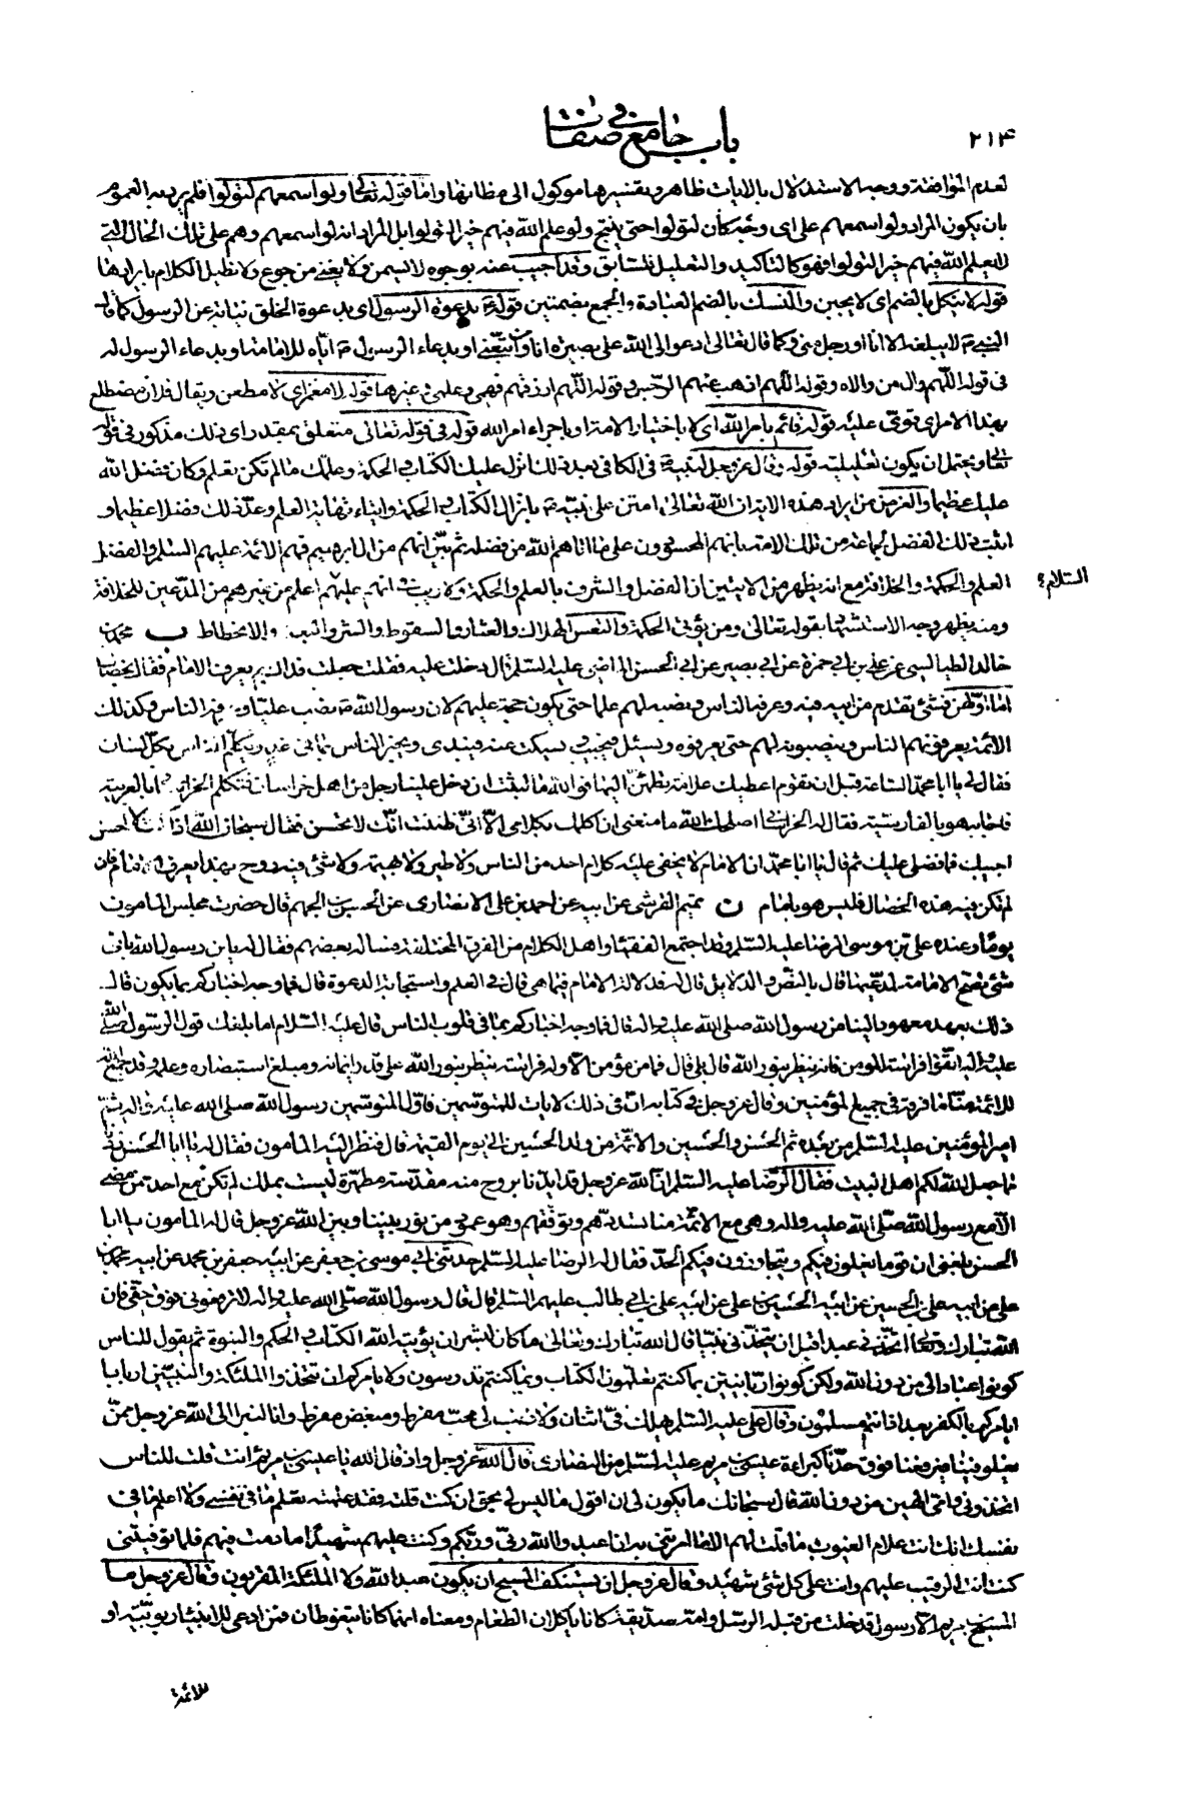 ٢١٤
باب جامع في صفات
لعدم الموافقة ووجه الاستدلال بالايات ظاهر وتفسيرها موكول الى مظانها واما قوله تعالى ولو اسمعهم لتولوا فلم يرد به العموم
بان يكون المراد ولو اسمعهم على اى وجه كان لتولوا حتى ينتج ولو علم الله فيهم خيرا لتولوا بل المراد انه لو اسمعهم وهم على تلك الحال التي
لا يعلم الله فيهم خيرا لتولوا فهو كالتاكيد والتعليل للسابق وقد اجيب عنه بوجوه لا يسمن ولا يغني من جوع ولا نطيل الكلام بايرادها
قوله لا ينكل بالضم اى لا يجبن والنسك بالضم العبادة والجمع بضمتين قوله بدعوة الرسول اى بدعوة الخلق نيابة عن الرسول كما قال
النبي لا يبلغه الا انا او رجل مني وكما قال تعالى ادعو الى الله على بصيرة انا ومن اتبعني او بدعاء الرسول اياه للامامة او بدعاء الرسول له
في قوله اللهم وال من والاه وقوله اللهم اذهب عنهم الرجس وقوله اللهم ارزقهم فهمي وعلمي وغيرها قوله لا مغمز اى لا مطعن ويقال فلان مضطلع
بهذا الامر اى قوي عليه قوله قائم بامر الله اى لا باختيار الامة او باجراء امر الله قوله في قوله تعالى متعلق بمقدر اى ذلك مذكور في قوله
تعالى ويحتمل ان يكون تعليلية قوله وقال عز وجل لنبيه في الكافي بعد ذلك انزل عليك الكتاب والحكمة وعلمك ما لم تكن تعلم وكان فضل الله
عليك عظيما والغرض من ايراد هذه الاية ان الله تعالى امتن على نبيه بانزال الكتاب والحكمة وايتاء نهاية العلم وعد ذلك فضلا عظيما و
اثبت ذلك الفضل لجماعة من تلك الامة بانهم المحسودون على ما اتاهم الله من فضله ثم بين انهم من ال ابرهيم فهم الائمة عليهم السلم والفضل
العلم والحكمة والخلافة مع انه يظهر من الايتين ان الفضل والشرف بالعلم والحكمة ولا ريب في انهم عليهم السلام اعلم من غيرهم من المدعين للخلافة
ومنه يظهر وجه الاستشهاد بقوله تعالى ومن يؤتى الحكمة والتعس الهلاك والعثار والسقوط والشر والبعد والانحطاط ب محمد بن
خالد الطيالسي عن علي بن ابي حمزة عن ابي بصير عن ابي الحسن الماضي عليه السلم قال دخلت عليه فقلت جعلت فداك بم يعرف الامام فقال بخصال
اما اولهن فشئ تقدم من ابيه فيه وعرفه الناس ونصبه لهم علما حتى يكون حجة عليهم لان رسول الله نصب عليا وعرفه الناس وكذلك
الائمة يعرفونهم الناس وينصبونهم لهم حتى يعرفوه ويسئل فيجيب ويسكت عنه فيبتدى ويخبر الناس بما في غد ويكلم الناس بكل لسان
فقال لي يا ابا محمد الساعة قبل ان تقوم اعطيك علامة تطمئن اليها فوالله ما لبثت ان دخل علينا رجل من اهل خراسان فتكلم الخراساني بالعربية
فاجابه هو بالفارسية فقال له الخراساني اصلحك الله ما منعني ان اكلمك بكلامي الا اني ظننت انك لا تحسن فقال سبحان الله اذا كنت لا احسن
اجيبك فما فضلي عليك ثم قال يا ابا محمد ان الامام لا يخفى عليه كلام احد من الناس ولا طير ولا بهيمة ولا شئ فيه روح بهذا يعرف الامام فان
لم تكن فيه هذه الخصال فليس هو بامام ن تميم القرشي عن ابيه عن احمد بن علي الانصارى عن الحسن بن الجهم قال حضرت مجلس المامون
يوما وعنده علي بن موسى الرضا عليه السلم وقد اجتمع الفقهاء واهل الكلام من الفرق المختلفة فساله بعضهم فقال له يابن رسول الله باى
شئ تصح الامامة لمدعيها قال بالنص والدلايل قال له فدلالة الامام فيما هي قال في العلم واستجابة الدعوة قال فما وجه اخباركم بما يكون قال
ذلك بعهد معهود الينا من رسول الله صلى الله عليه واله قال فما وجه اخباركم بما في قلوب الناس قال عليه السلام اما بلغك قول الرسول صلى الله
عليه واله اتقوا فراسة المومن فانه ينظر بنور الله قال بلى قال فما من مؤمن الا وله فراسة ينظر بنور الله على قدر ايمانه ومبلغ استبصاره وعلمه وقد جمع الله
للائمة منا ما فرقه في جميع المؤمنين وقال عز وجل في كتابه ان في ذلك لايات للمتوسمين فاول المتوسمين رسول الله صلى الله عليه واله ثم
امير المؤمنين عليه السلم من بعده ثم الحسن والحسين والائمة من ولد الحسين الى يوم القيمة قال فنظر اليه المامون فقال له يا ابا الحسن زدنا
مما جعل الله لكم اهل البيت فقال الرضا عليه السلم ان الله عز وجل قد ايدنا بروح منه مقدسة مطهرة ليست بملك لم تكن مع احد ممن مضى
الا مع رسول الله صلى الله عليه واله وهي مع الائمة منا تسددهم وتوفقهم وهو عمود من نور بيننا وبين الله عز وجل قال له المامون يا ابا
الحسن بلغني ان قوما يغلون فيكم ويتجاوزون فيكم الحد فقال له الرضا عليه السلم حدثني ابي موسى بن جعفر عن ابيه جعفر بن محمد عن ابيه محمد بن
علي عن ابيه علي بن الحسين عن ابيه الحسين بن علي عن ابيه علي بن ابي طالب عليهم السلم قال قال رسول الله صلى الله عليه واله لا ترفعوني فوق حقي فان
الله تبارك وتعالى اتخذني عبدا قبل ان يتخذني نبيا قال الله تبارك وتعالى ما كان لبشر ان يؤتيه الله الكتاب والحكم والنبوة ثم يقول للناس
كونوا عبادا لي من دون الله ولكن كونوا ربانيين بما كنتم تعلمون الكتاب وبما كنتم تدرسون ولا يامركم ان تتخذوا الملئكة والنبيين اربابا
ايامركم بالكفر بعد اذ انتم مسلمون وقال علي عليه السلم يهلك في اثنان ولا ذنب لي محب مفرط ومبغض مفرط وانا لنبرا الى الله عز وجل ممن
يغلو فينا فيرفعنا فوق حدنا كبراءة عيسى بن مريم عليه السلم من النصارى قال الله عز وجل واذ قال الله يا عيسى بن مريم ءانت قلت للناس
اتخذوني وامي الهين من دون الله قال سبحانك ما يكون لي ان اقول ما ليس لي بحق ان كنت قلته فقد علمته تعلم ما في نفسي ولا اعلم ما في
نفسك انك انت علام الغيوب ما قلت لهم الا ما امرتني به ان اعبدوا الله ربي وربكم وكنت عليهم شهيدا ما دمت فيهم فلما توفيتني
كنت انت الرقيب عليهم وانت على كل شئ شهيد وقال عز وجل لن يستنكف المسيح ان يكون عبد الله ولا الملئكة المقربون وقال عز وجل ما
المسيح بن مريم الا رسول قد خلت من قبله الرسل وامه صديقة كانا ياكلان الطعام ومعناه انهما كانا يتغوطان فمن ادعى للانبياء ربوبية او
للائمة